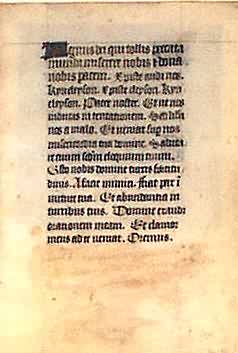 Agnus dei qui tollis peccata
mundi miserere nobis ⁊ dona
nobis pacem. Xpiste audi nos.
Kyrieleyson. Xpiste eleyson. Kyri
eleyson. Pater noster. Et ne nos
inducas in tentationem. Sed libera
nos a malo. Et veniat sup nos
misericordia tua domine. Saluta
re tuum scdm eloquium tuum.
Esto nobis domine turris fortitu
dinis. A facie inimici. Fiat pax i
virtute tua. Et abundantia in
turribus tuis. Domine exaudi
orationem meam. Et clamor
meus ad te veniat. Oremus.